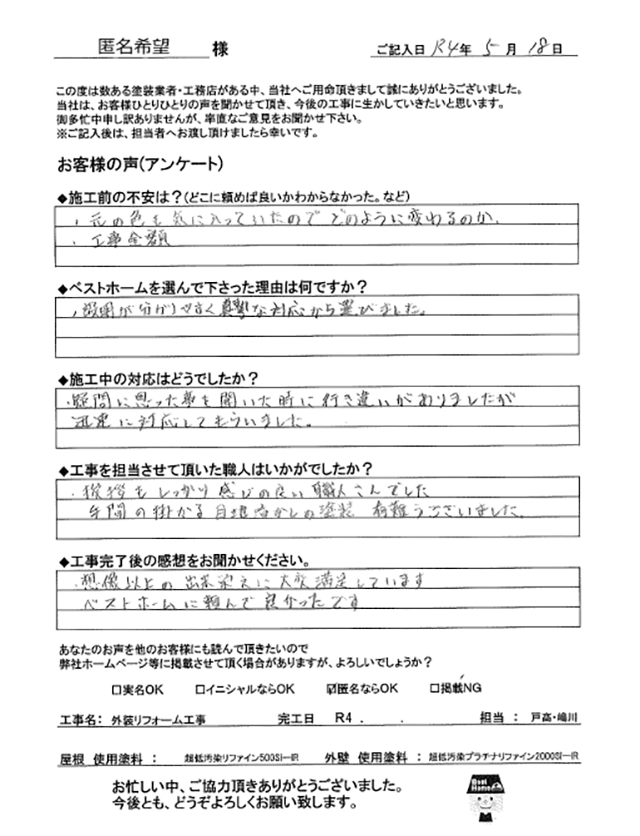 匿名希望 様 ご記入日 R4年 5月 18日
この度は数ある塗装業者・工務店がある中、当社へご用命頂きまして誠にありがとうございました。
当社は、お客様ひとりひとりの声を聞かせて頂き、今後の工事に生かしていきたいと思います。
御多忙中申し訳ありませんが、率直なご意見をお聞かせ下さい。
※ご記入後は、担当者へお渡し頂けましたら幸いです。
お客様の声(アンケート)
◆施工前の不安は？(どこに頼めば良いかわからなかった。など)
・元の色も気に入っていたので どのように変わるのか。
・工事金額
◆ベストホームを選んで下さった理由は何ですか？
・説明が分かりやすく真摯な対応から選びました。
◆施工中の対応はどうでしたか？
・疑問に思った事を聞いた時に行き違いがありましたが
迅速に対応してもらいました。
◆工事を担当させて頂いた職人はいかがでしたか？
・挨拶もしっかり感じの良い職人さんでした
手間の掛かる目地活かしの塗装 有難うございました。
◆工事完了後の感想をお聞かせください。
・想像以上の出来栄えに大変満足しています
ベストホームに頼んで良かったです
あなたのお声を他のお客様にも読んで頂きたいので
弊社ホームページ等に掲載させて頂く場合がありますが、よろしいでしょうか？
□実名OK □イニシャルならOK ☑匿名ならOK □掲載NG
工事名： 外装リフォーム工事 完工日 R4 . . 担当 ： 戸高・嶋川
屋根 使用塗料 ： 超低汚染リファイン500SI-IR 外壁 使用塗料 ： 超低汚染プラチナリファイン2000SI-IR
お忙しい中、ご協力頂きありがとうございました。
今後とも、どうぞよろしくお願い致します。
Best Home